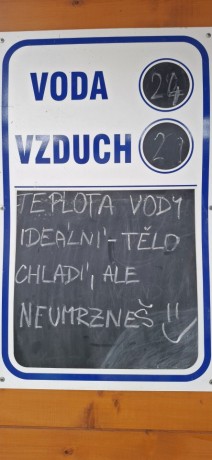 VODA 24
VZDUCH 21
TEPLOTA VODY
IDEÁLNÍ - TĚLO
CHLADÍ, ALE
NEUMRZNEŠ!!